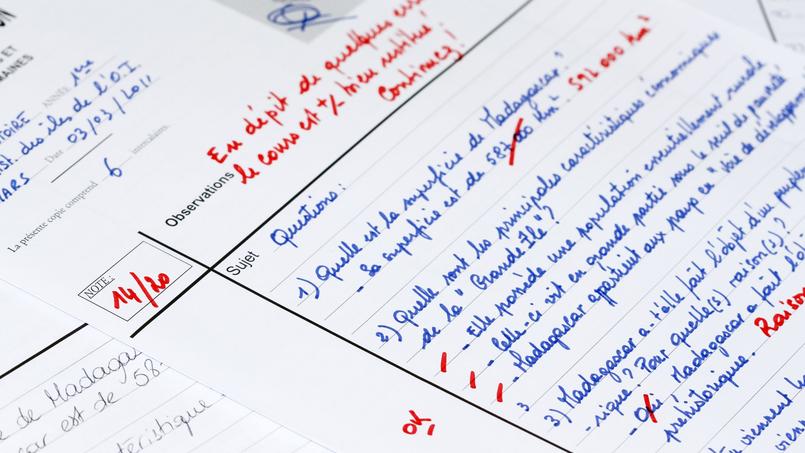 ON
ET
AINES
ANNÉE 1ère
TOIRE
ist. des îles de l'O.I.
Date 03/03/2011
MARS
6 intercalaires.
La présente copie comprend
Observations
En dépit de quelques
le cours est +/- bien restitué
Continuez !
NOTE :
14/20
Sujet
Questions :
1) Quelle est la superficie de Madagascar ?
- Sa superficie est de 587 000 Km². 592 000 Km²
2) Quelle sont les principales caractéristiques économiques
de la "Grande Île" ?
- Elle possède une population essentiellement rurale
- Celle-ci vit en grande partie sous le seuil de pauvreté
- Madagascar appartient aux pays en "voie de développe
3
3) Madagascar a-t-elle fait l'objet d'un peuplem
-rique ? Pour quelle(s) raison(s) ?
- Oui Madagascar a fait l'o
préhistorique. Raison
viennent
OK
e de Madagas
car est de 58
téristique